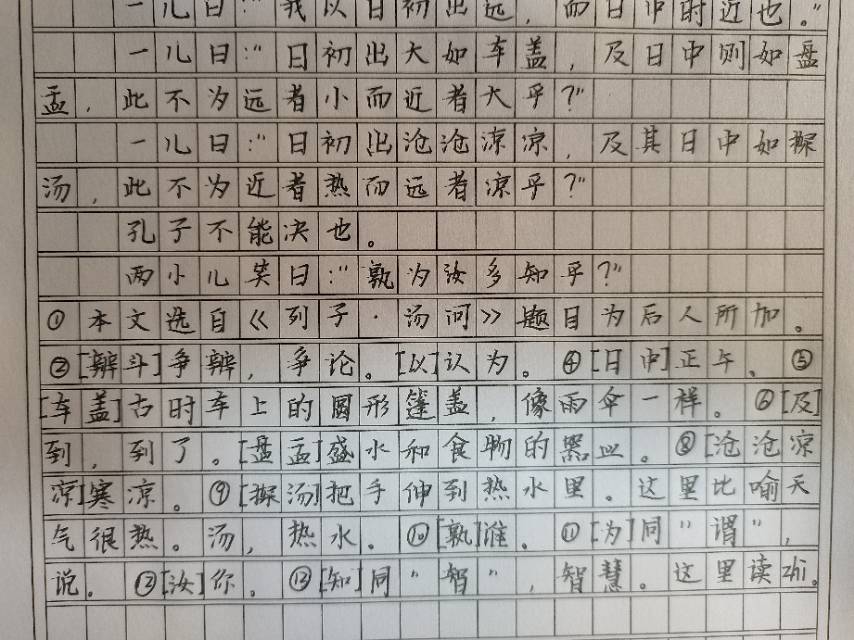 一儿曰:"我以日初出远,而日中时近也。"
一儿曰:"日初出大如车盖,及日中则如盘
盂,此不为远者小而近者大乎?"
一儿曰:"日初出沧沧凉凉,及其日中如探
汤,此不为近者热而远者凉乎?"
孔子不能决也。
两小儿笑曰:"孰为汝多知乎?"
①本文选自《列子·汤问》题目为后人所加。
②[辨斗]争辨,争论。[以]认为。④[日中]正午、⑤
[车盖]古时车上的圆形篷盖,像雨伞一样。⑥[及]
到,到了。[盘盂]盛水和食物的器皿。⑧[沧沧凉
凉]寒凉。⑨[探汤]把手伸到热水里。这里比喻天
气很热。汤,热水。⑩[孰]谁。⑪[为]同"谓",
说。⑫[汝]你。⑬[知]同"智",智慧。这里读zhì。